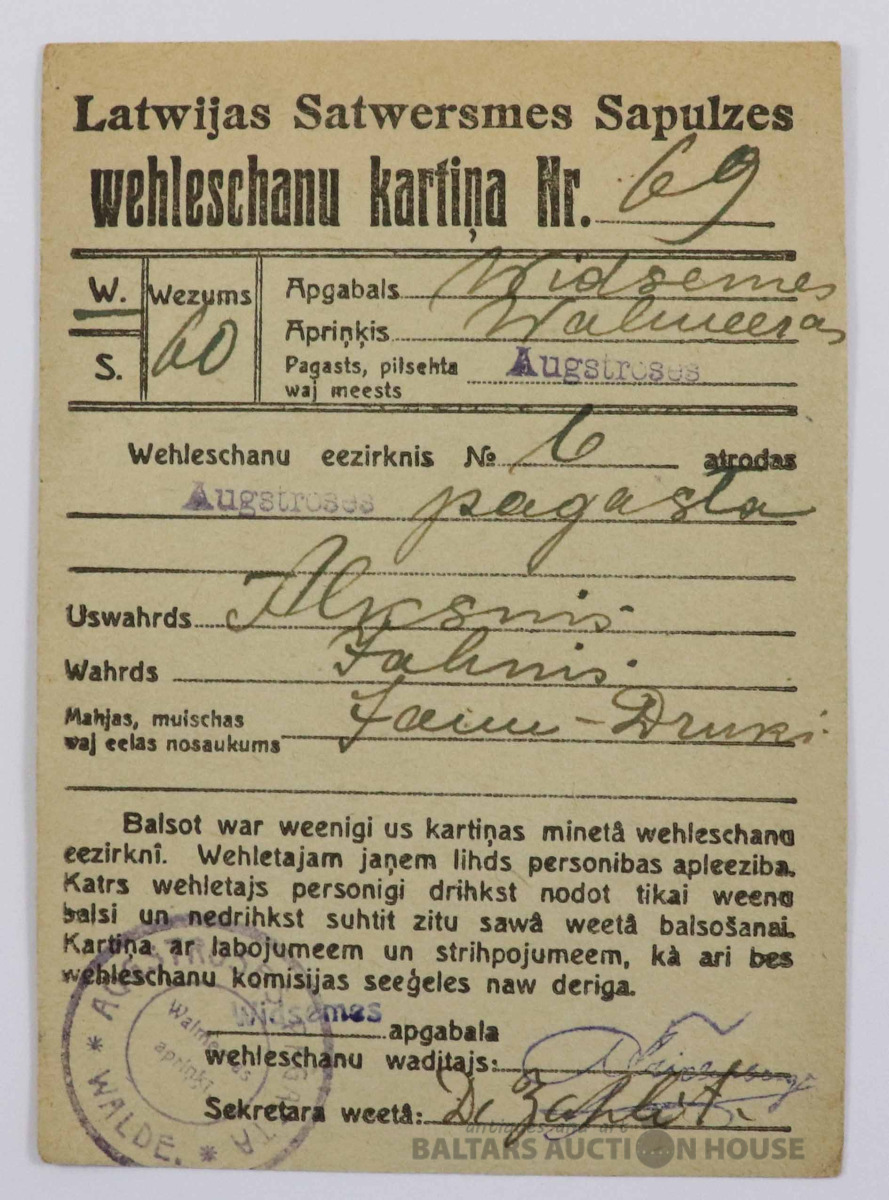 Latwijas Satwersmes Sapulzes
wehleschanu kartiņa Nr. 69
W.
S.
Wezums
60
Apgabals Widsemes
Apriņķis Walmeeras
Pagasts, pilsehta
waj meests
Augstroses
Wehleschanu eezirknis № 6 atrodas
Augstroses pagasta
Uswahrds Alksnis
Wahrds Jahnis
Mahjas, muischas
waj eelas nosaukums
Jaun-Druki
Balsot war weenigi us kartiņas minetâ wehleschanu
eezirknî. Wehletajam jaņem lihds personibas apleeziba.
Katrs wehletajs personigi drihkst nodot tikai weenu
balsi un nedrihkst suhtit zitu sawâ weetâ balsošanai.
Kartiņa ar labojumeem un strihpojumeem, kà ari bes
wehleschanu komisijas seeģeles naw deriga.
Widsemes apgabala
wehleschanu waditajs:
Sekretara weetâ:
WALDE.
antiques and art
BALTARS AUCTION HOUSE